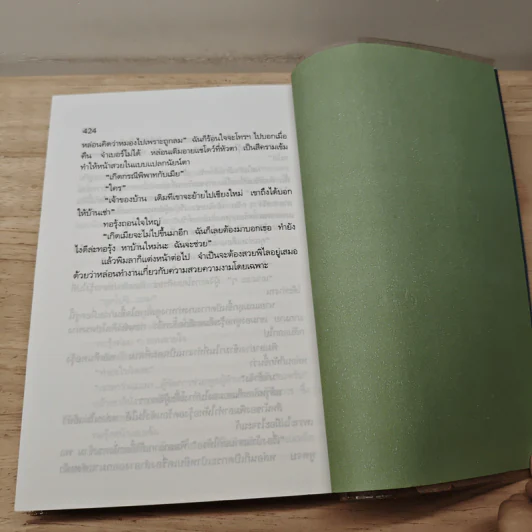 424
หล่อนคิดว่าหมองไปเพราะถูกลม” ฉันก็ร้อนใจจะโทรฯ ไปบอกเมื่อ
คืน จำเบอร์ไม่ได้ หล่อนเติมอายแชโดว์ที่หัวตา เป็นสีครามเข้ม
ทำให้หน้าสวยในแบบแปลกนัยน์ตา
“เกิดกรณีพิพาทกับเมีย”
“ใคร”
“เจ้าของบ้าน เดิมทีเขาจะย้ายไปเชียงใหม่ เขาถึงได้บอก
ให้บ้านเช่า”
ทอรุ้งถอนใจใหญ่
“เกิดเมียจะไม่ไปขึ้นมาอีก ฉันก็เลยต้องมาบอกเธอ ทำยัง
ไงดีล่ะทอรุ้ง หาบ้านใหม่นะ ฉันจะช่วย”
แล้วพิมลาก็แต่งหน้าต่อไป จำเป็นจะต้องสวยพิไลอยู่เสมอ
ด้วยว่าหล่อนทำงานเกี่ยวกับความสวยความงามโดยเฉพาะ